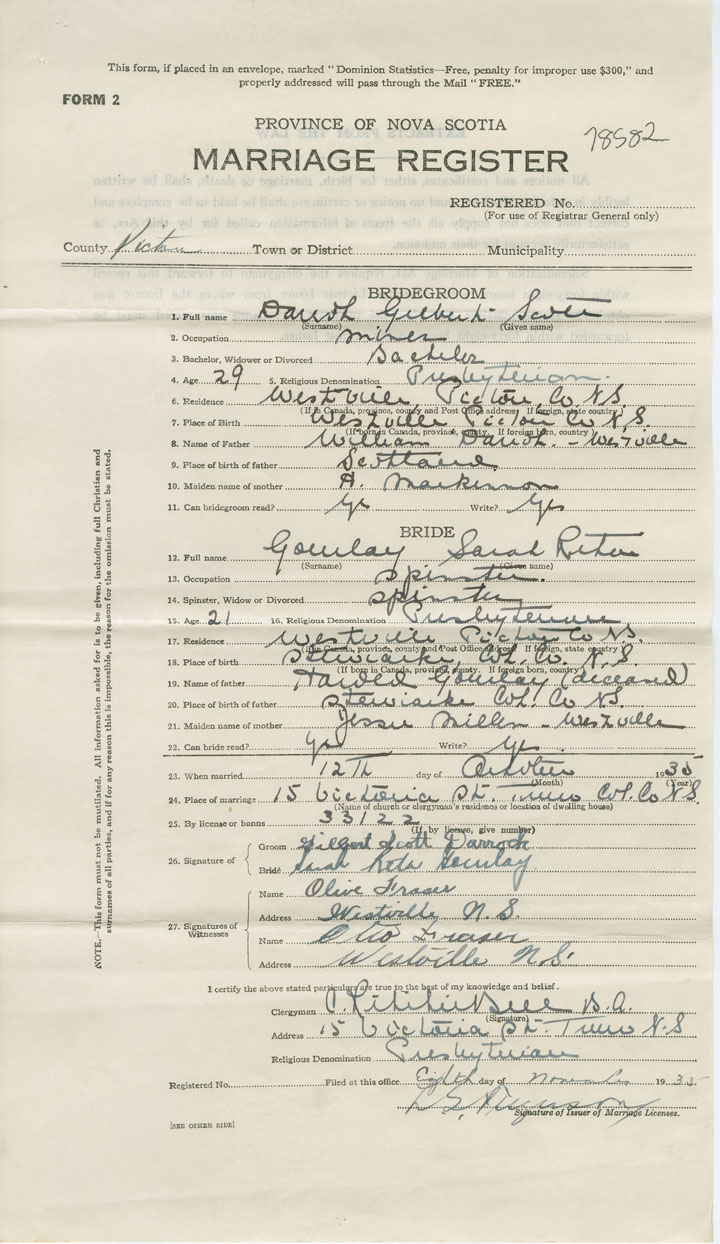 This form, if placed in an envelope, marked "Dominion Statistics—Free, penalty for improper use $300," and
properly addressed will pass through the Mail "FREE."
FORM 2
PROVINCE OF NOVA SCOTIA
78582
MARRIAGE REGISTER
REGISTERED No.
(For use of Registrar General only)
County Town or District Municipality
BRIDEGROOM
1. Full name Gilbert Scott
(Surname) (Given name)
2. Occupation miner
3. Bachelor, Widower or Divorced Bachelor
4. Age 29 5. Religious Denomination Presbyterian.
6. Residence Westville, Pictou Co N.S.
(If in Canada, province, county and Post Office address. If foreign, state country)
7. Place of Birth Westville Pictou Co N.S.
(If born in Canada, province, county. If foreign born, country)
8. Name of Father William - Westville
9. Place of birth of father Scotland
10. Maiden name of mother
11. Can bridegroom read? Yes Write? Yes
BRIDE
12. Full name Gourlay Sarah Reta
(Surname) (Given name)
13. Occupation spinster.
14. Spinster, Widow or Divorced spinster
15. Age 21 16. Religious Denomination Presbyterian
17. Residence Westville Pictou Co N.S.
(If in Canada, province, county and Post Office address. If foreign, state country)
18. Place of birth Stewiacke, Col. Co. N.S.
(If born in Canada, province, county. If foreign born, country)
19. Name of father Gourlay (deceased)
20. Place of birth of father Stewiacke Col. Co N.S.
21. Maiden name of mother Jessie Miller - Westville
22. Can bride read? Yes Write? Yes
23. When married 12Th day of October 1935
(Month) (Year)
24. Place of marriage 15 Victoria St. Truro Col. Co N.S.
(Name of church or clergyman's residence or location of dwelling house)
25. By license or banns 33122
(If by license, give number)
26. Signature of
Groom Gilbert Scott Darroch
Bride Sarah Reta Gourlay
27. Signatures of Witnesses
Name Olive Fraser
Address Westville N.S.
Name Otto Fraser
Address Westville N.S.
I certify the above stated particulars are true to the best of my knowledge and belief.
Clergyman C. Ritchie Bell B.A.
(Signature)
Address 15 Victoria St. Truro N.S
Religious Denomination Presbyterian
Registered No. Filed at this office Eighth day of November 1935
Signature of Issuer of Marriage Licenses.
[SEE OTHER SIDE]
NOTE.—This form must not be mutilated. All information asked for is to be given, including full Christian and
surnames of all parties, and if for any reason this is impossible, the reason for the omission must be stated.